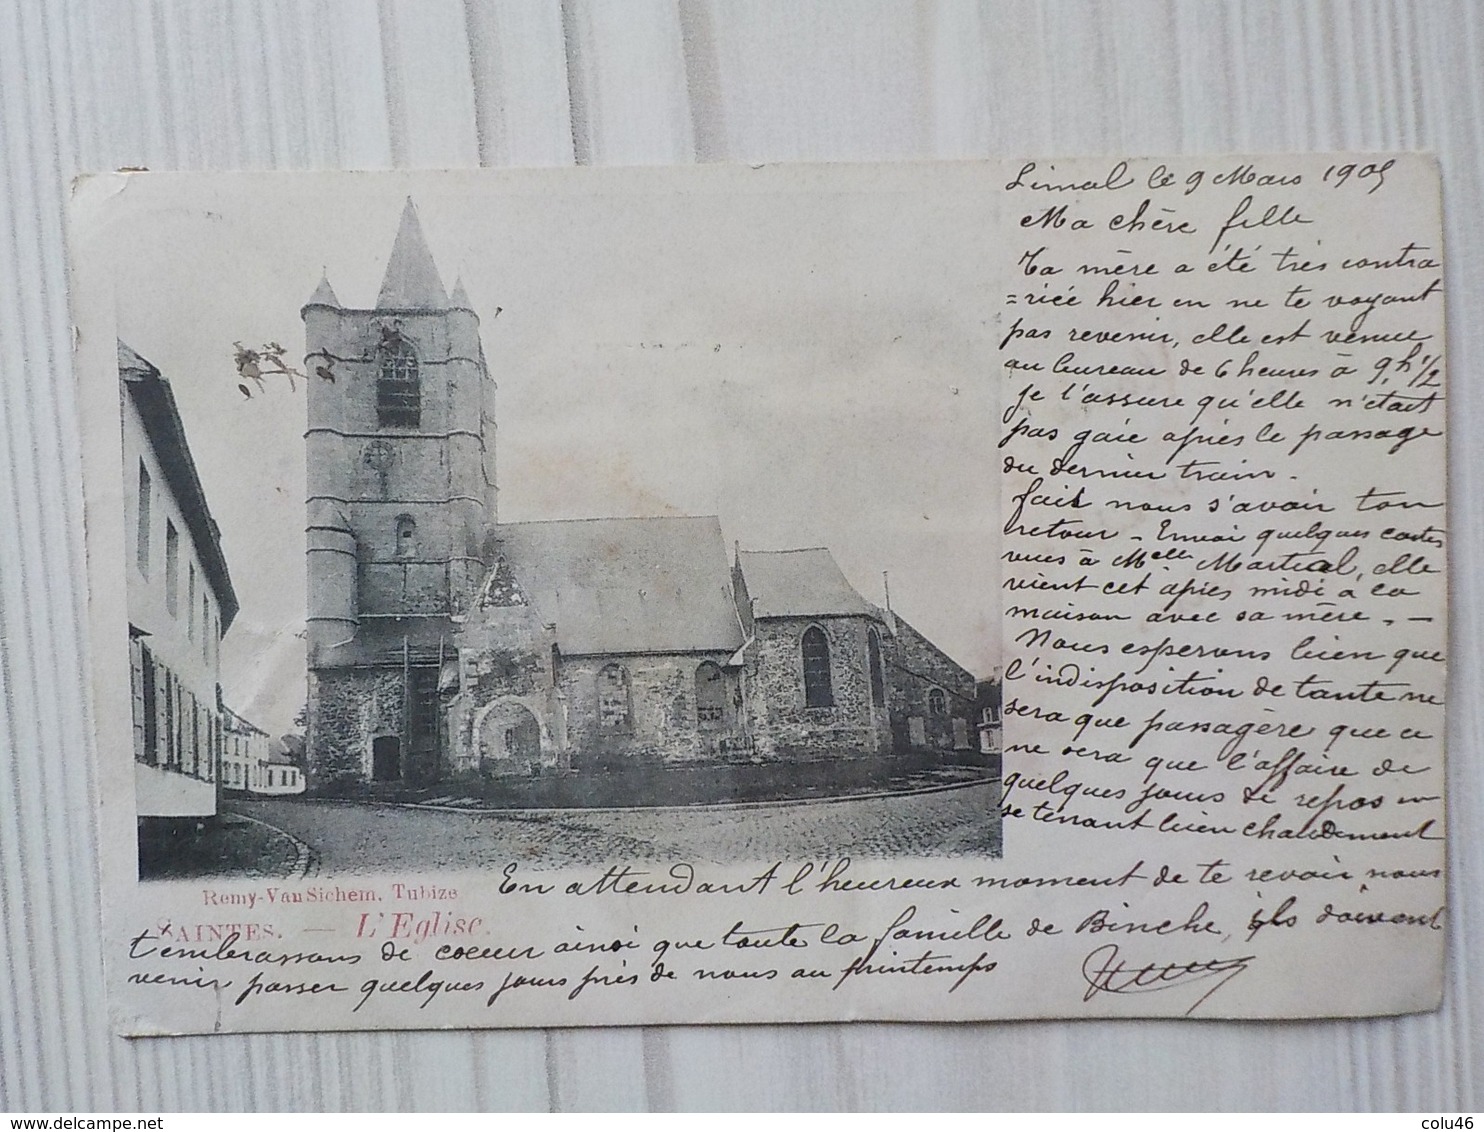 Limal le 9 Mars 1905
Ma chère fille
Ta mère a été très contra
=riée hier en ne te voyant
pas revenir, elle est venue
au bureau de 6 heures à 9h 1/2
je t'assure qu'elle n'était
pas gaie après le passage
du dernier train.
fait nous s'avoir ton
retour - Envoi quelques cartes
vues à Melle Martial, elle
vient cet après midi à la
maison avec sa mère. -
Nous esperons bien que
l'indisposition de tante ne
sera que passagère que ce
ne sera que l'affaire de
quelques jours de repos en
se tenant bien chaudement
En attendant l'heureux moment de te revoir nous
t'embrassons de coeur ainsi que toute la famille de Binche, ils doivent
venir passer quelques jours près de nous au printemps
Remy-Van Sichem, Tubize
SAINTES. — L'Eglise.
delcampe.net
colu46